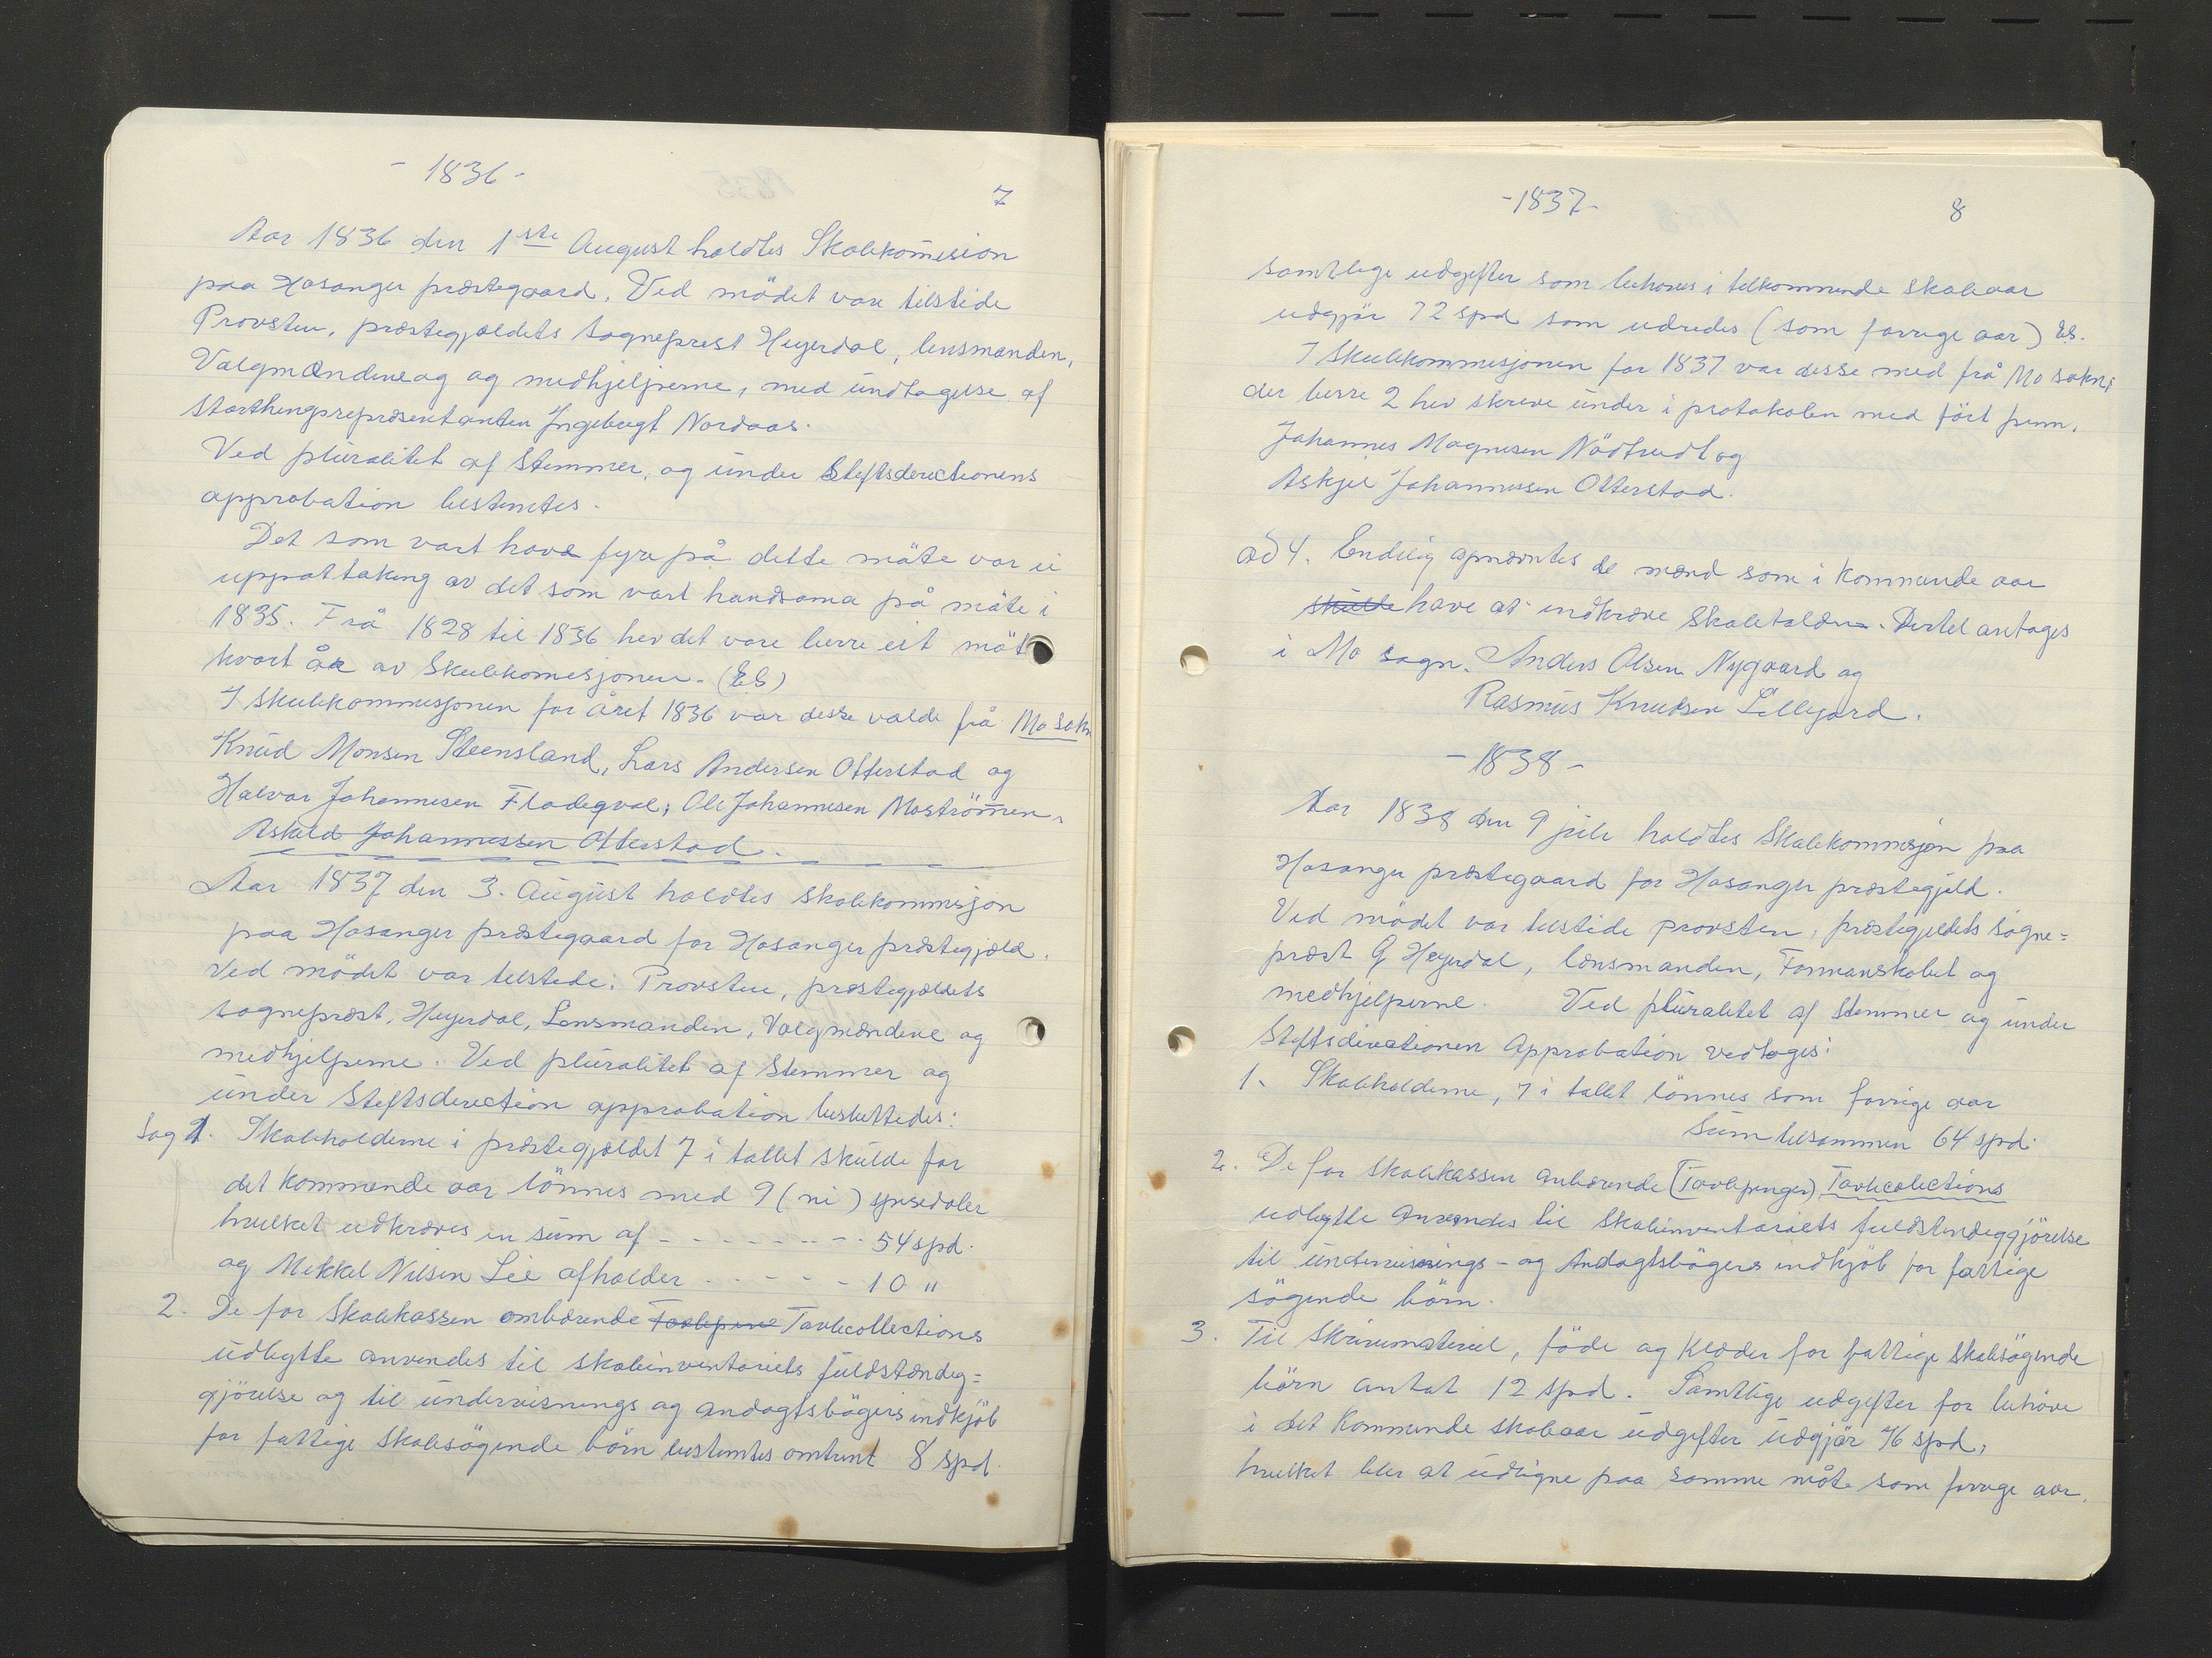 - 1836 -
7
Aar 1836 den 1ste August holdtes Skolekomision
paa Hosanger præstegaard. Ved mödet vare tilstede
Provsten, præstegjældets sogneprest Heyerdal, lensmanden,
Valgmændene og og medhjelperne, med undtagelse af
storthingsrepræsentanten Ingebregt Nordaas.
Ved pluralitet af stemmer, og under Stiftsderectionens
approbation bestemtes.
Det som vart havd fyre på dette möte var ei
uppattaking av det som vart handsama på möte i
1835. Frå 1828 til 1836 hev det vore berre eit möt
kvart år av Skulekomisjonen. (EB)
I skulekommisjonen for året 1836 var desse valde frå Mo sokn
Knud Monsen Steensland, Lars Andersen Otterstad og
Halvor Johannesen Fladegval, Ole Johannesen Moströmen,
Askild Johannessen Otterstad.
Aar 1837 den 3. August holdtes skolekommisjon
paa Hosanger præstegaard for Hosanger præstegjæld.
Ved mödet var tilstede: Provsten, præstegjældets
sognepræst, Heyerdal, Lensmanden, Valgmændene og
medhjelperne. Ved pluralitet af Stemmer og
under Stiftsdirection approbation besluttedes:
Sag 1. Skoleholderne i præstegjældet 7 i tallet skulde for
det kommende aar lönnes med 9 (ni) spesidaler
hvilket udkræves en sum af - - - - - - - - 54 spd.
og Mikkel Nilsen Lie afholder - - - - - 10 "
2. De for Skolekassen ombærende Tavlepene Tavlecollections
udbytte anvendes til skoleinventariets fuldstændig=
gjörelse og til undervisnings og andagtsbögers indkjöb
for fattige skolesögende börn bestemtes omtrent 8 spd.
- 1837 -
8
samtlige udgifter som behoves i tilkommende skoleaar
udgjör 72 spd som udredes (som forrige aar) EB.
I Skulekommisjonen for 1837 var desse med frå Mo sokn;
der berre 2 hev skreve under i protokolen med fört penn.
Johannes Magnesen Nödtvedt og
Askjel Johannessen Otterstad.
ad 4. Endelig opnævntes de mænd som i kommende aar
skulde have at indkræve skoletolden. Dertil antages
i Mo sogn. Anders Olsen Nygaard og
Rasmus Knudsen Lillejord.
- 1838 -
Aar 1838 den 9 juli holdtes Skolekommisjon paa
Hosanger præstegaard for Hosanger præstegjeld.
Ved mödet var tilstede provsten, præstegjeldets sogne=
præst G Heyerdal, lensmanden, Formanskabet og
medhjelperne. Ved pluralitet af Stemmer og under
Stiftsdirectionen Approbation vedtoges:
1. Skoleholderne, 7 i tallet lönnes som forrige aar
Sum tilsammen 64 spd.
2. De for skolekassen anbærende (Tavlepenger) Tavlecolections
udbytte anvendes til Skoleinventariets fuldstendiggjörelse
til undervisnings- og Andagtsbögers indkjöb for fattige
sögende börn.
3. Til Skrivemateriel, föde og Klæder for fattige skolesögende
börn antat 12 spd. Samtlige udgifter for behöve
i det Kommende skoleaar udgifter udgjör 76 spd,
hvilket blir at udligne paa samme måte som forrige aar.